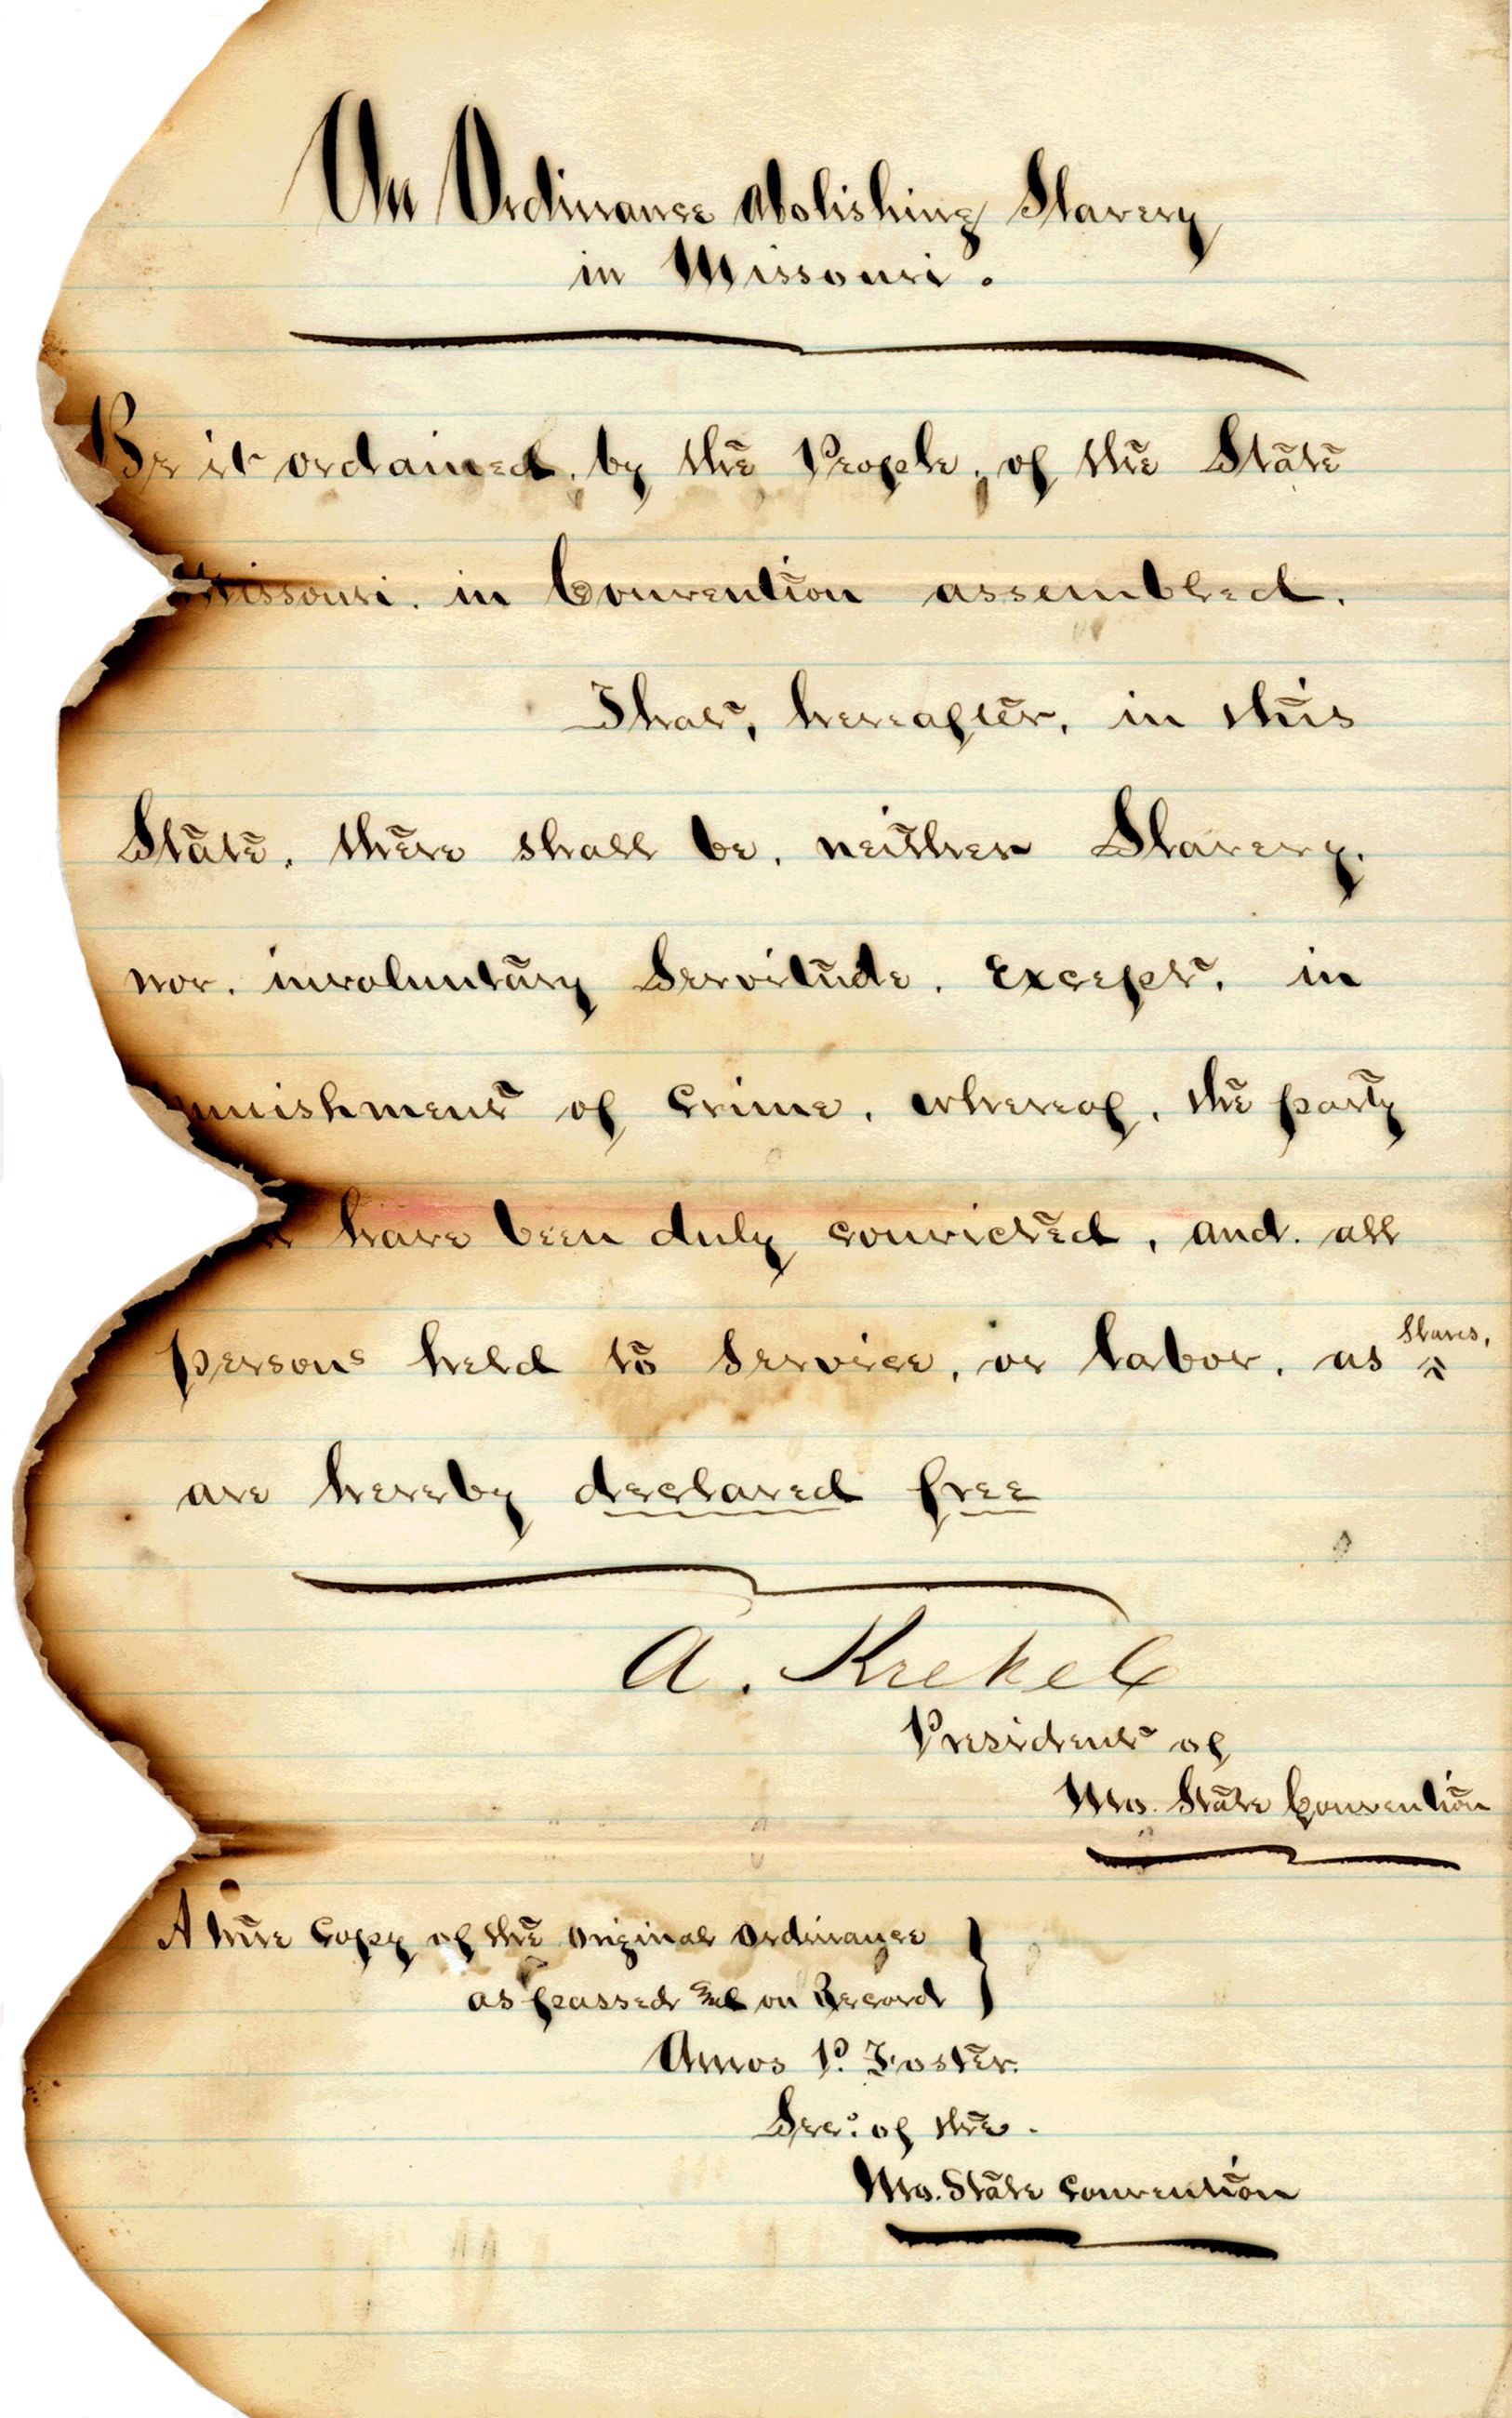 An Ordinance Abolishing Slavery
in Missouri.
Be it ordained, by the People, of the State
Missouri. in Convention assembled.
That, hereafter, in this
State, there shall be, neither Slavery,
nor. involuntary Servitude, Except, in
punishment of Crime, whereof, the party
have been duly convicted, and. all
Slaves,
persons held to Service, or labor, as ^
are hereby declared free
A. Krekel
President of
Mo. State Convention
A true Copy of the Original Ordinance
as passed and on Record
Amos P. Foster.
Sec: of the.
Mo. State Convention